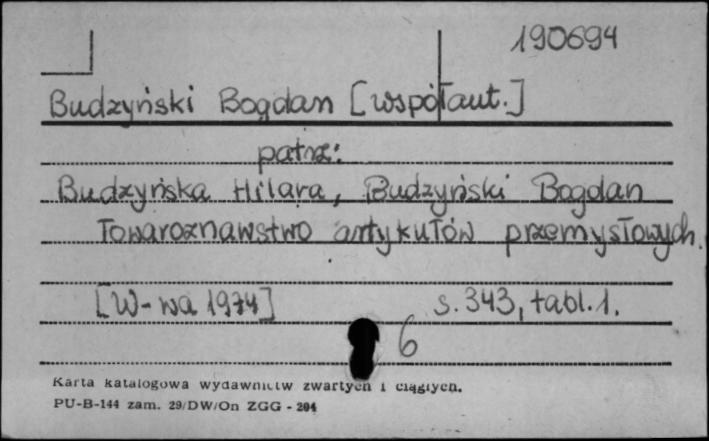 190694
Budzyński Bogdan [współaut.]
patrz:
Budzyńska Hilara, Budzyński Bogdan
Towaroznawstwo artykułów przemysłowych.
[W-wa 1974] s. 343, tabl. 1.
6
Karta katalogowa wydawnictw zwartych i ciągłych.
PU-B-144 zam. 29/DW/On ZGG - 204